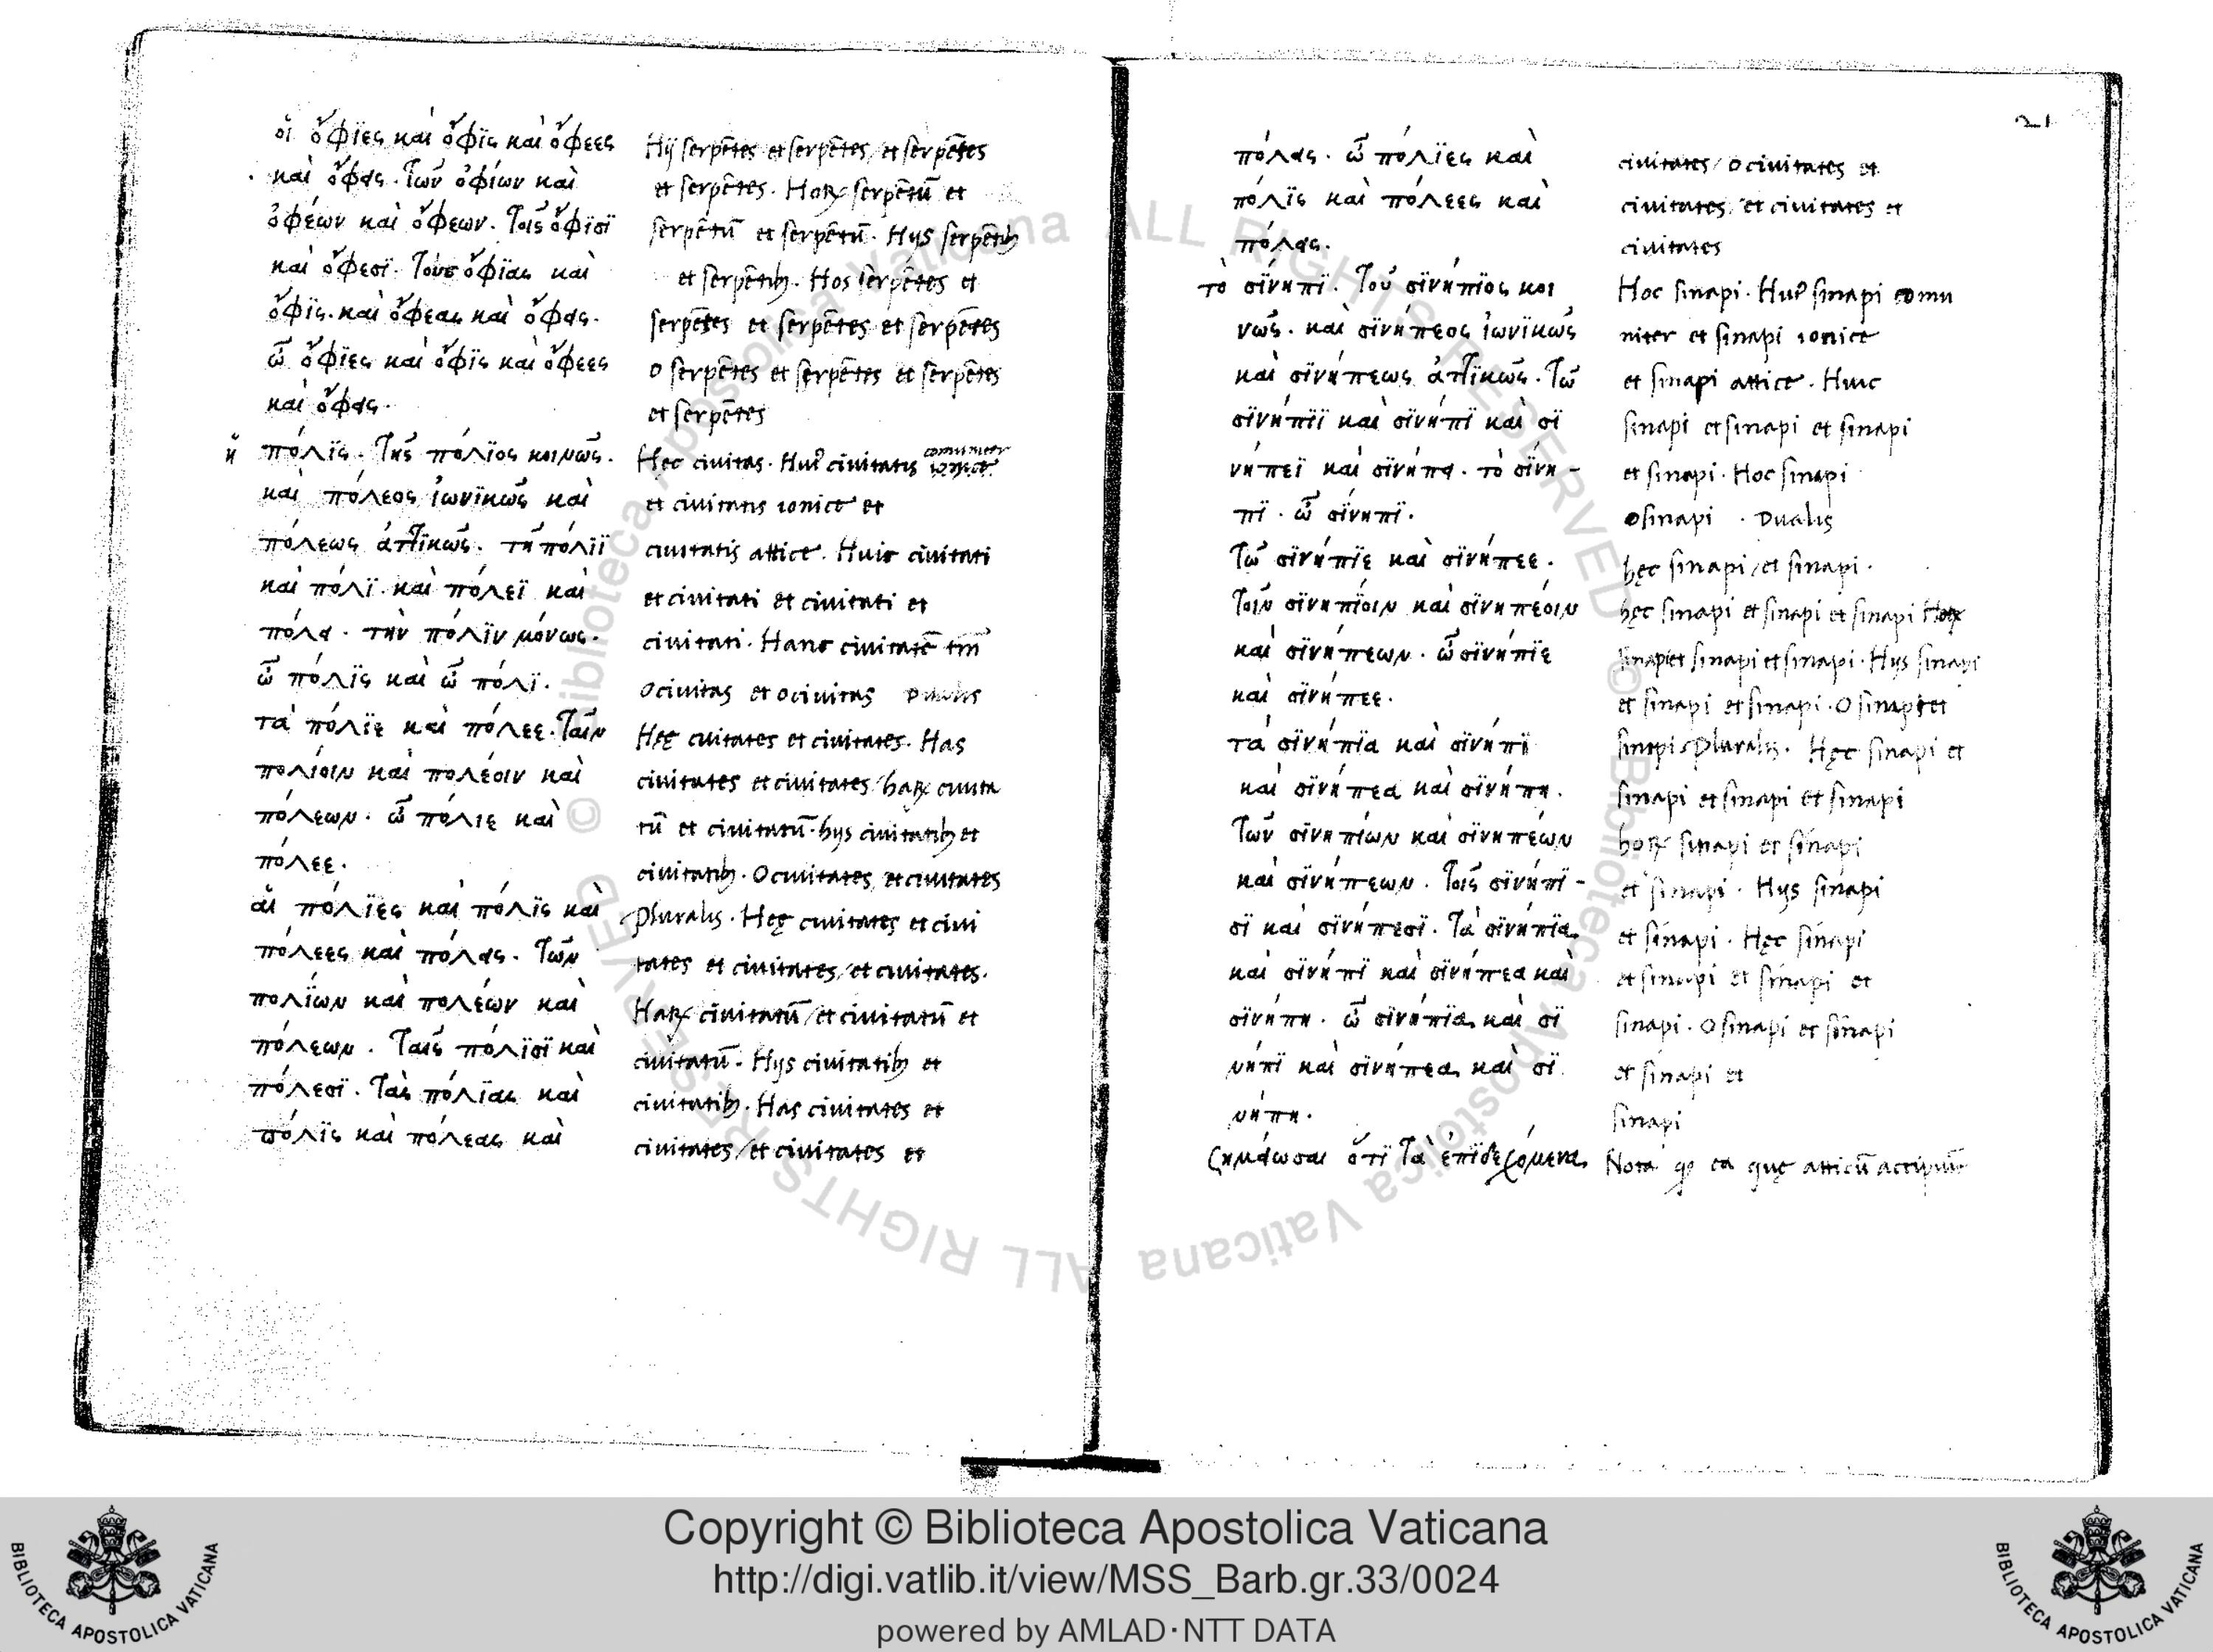 οἱ ὄφϊες καὶ ὄφϊς καὶ ὄφεες
καὶ ὄφεις. Τῶν ὀφίων καὶ
ὀφέων καὶ ὄφεων. Τοῖς ὄφϊσϊ
καὶ ὄφεσϊ. Τοὺς ὄφϊας καὶ
ὄφϊς. καὶ ὄφεας καὶ ὄφεις.
ὦ ὄφϊες καὶ ὄφϊς καὶ ὄφεες
καὶ ὄφεις.
ἡ πόλϊς. Τῆς πόλϊος κοινῶς.
καὶ πόλεος ἰωνϊκῶς καὶ
πόλεως ἀττϊκῶς. τῇ πόλϊϊ
καὶ πόλϊ. καὶ πόλεϊ καὶ
πόλει. τὴν πόλϊν μόνως.
ὦ πόλϊς καὶ ὦ πόλϊ.
τὰ πόλϊε καὶ πόλεε. Ταῖν
πολίοιν καὶ πολέοιν καὶ
πόλεων. ὦ πόλιε καὶ
πόλεε.
αἱ πόλϊες καὶ πόλϊς καὶ
πόλεες καὶ πόλεις. Τῶν
πολΐων καὶ πολέων καὶ
πόλεων. Ταῖς πόλϊσϊ καὶ
πόλεσϊ. Τὰς πόλϊας καὶ
πόλϊς καὶ πόλεας καὶ
Hij serpe͂tes et serpe͂tes / et serpe͂tes
et serpe͂tes. Haꝝ serpe͂tu͂ et
serpe͂tu͂ et serpe͂tu͂. Hys serpe͂tib
et serpe͂tib. Hos serpe͂tes et
serpe͂tes et serpe͂tes et serpe͂tes
O serpe͂tes et serpe͂tes et serpe͂tes
et serpe͂tes
Hęc civitas. Huiꝰ civitatis comuniter
et civitatis ionice et
civitatis attice. Huic civitati
et civitati et civitati et
civitati. Hanc civitate͂ tm͂
O civitas et o civitas Dualis
Hęc civitates et civitates. Has
civitates et civitates / haꝝ civita
tu͂ et civitatu͂. hys civitatib et
civitatib. O civitates et civitates
Pluralis. Hęc civitates et civi
tates et civitates / et civitates.
Haꝝ civitatu͂ / et civitatu͂ et
civitatu͂. Hys civitatib et
civitatib. Has civitates et
civitates / et civitates et
21
πόλεις. ὦ πόλϊες καὶ
πόλϊς καὶ πόλεες καὶ
πόλεις.
τὸ σϊνηπϊ. Τοῦ σϊνήπϊος κοι
νῶς. καὶ σϊνήπεος ἰωνϊκῶς
καὶ σϊνήπεως ἀττϊκῶς. Τῶ
σϊνήπϊϊ καὶ σϊνήπϊ καὶ σϊ
νήπεϊ καὶ σϊνήπει. τὸ σϊνη-
πϊ. ὦ σίνηπϊ.
Τὼ σϊνήπϊε καὶ σϊνήπεε.
Τοῖν σϊνηπΐοιν καὶ σϊνηπέοιν
καὶ σϊνήπεων. ὦ σϊνήπϊε
καὶ σϊνήπεε.
τὰ σϊνήπϊα καὶ σϊνήπϊ
καὶ σϊνήπεα καὶ σϊνήπη.
Τῶν σϊνηπίων καὶ σϊνηπέων
καὶ σϊνήπεων. Τοῖς σϊνήπϊ-
σϊ καὶ σϊνήπεσϊ. Τὰ σϊνήπϊα
καὶ σϊνήπϊ καὶ σϊνήπεα καὶ
σϊνήπη. ὦ σϊνήπϊα καὶ σϊ
νήπϊ καὶ σϊνήπεα καὶ σϊ
νήπη.
ζημείωσαι ὅτϊ Τὰ ἐπϊδεχόμενα
civitates / O civitates et
civitates, et civitates et
civitates
Hoc sinapi. Huiꝰ sinapi comu
niter et sinapi ionice
et sinapi attice. Huic
sinapi et sinapi et sinapi
et sinapi. Hoc sinapi
O sinapi . Dualis
hęc sinapi / et sinapi.
hęc sinapi et sinapi et sinapi Hoꝝ
sinapi et sinapi et sinapi. Hys sinapi
et sinapi et sinapi. O sinapi et
sinapi Pluralis. Hęc sinapi et
sinapi et sinapi et sinapi
hoꝝ sinapi et sinapi
et sinapi. Hys sinapi
et sinapi. Hęc sinapi
et sinapi et sinapi et
sinapi. O sinapi et sinapi
et sinapi et
sinapi
Nota ea quę
Copyright © Biblioteca Apostolica Vaticana
http://digi.vatlib.it/view/MSS_Barb.gr.33/0024
powered by AMLAD·NTT DATA
BIBLIOTECA APOSTOLICA VATICANA
BIBLIOTECA APOSTOLICA VATICANA
© Biblioteca Apostolica Vaticana ALL RIGHTS RESERVED
© Biblioteca Apostolica Vaticana ALL RIGHTS RESERVED